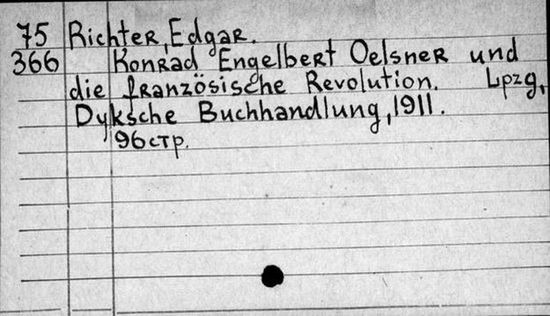 75 Richter, Edgar.
366 Konrad Engelbert Oelsner und
die französische Revolution. Lpzg,
Dyksche Buchhandlung, 1911.
96 стр.